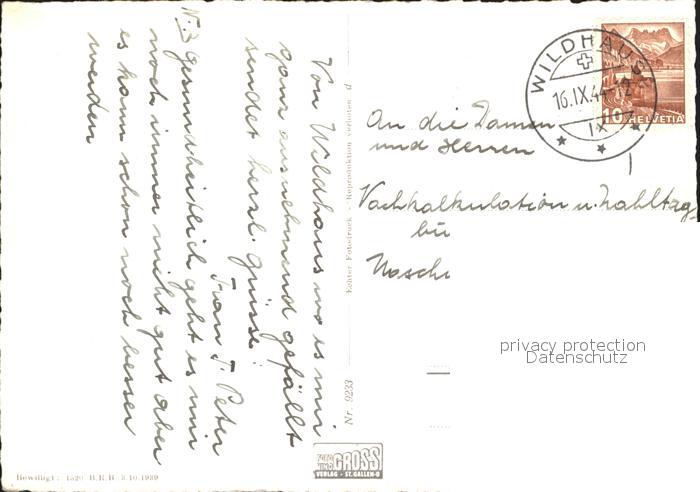 Von Wildhaus wo es mir
ganz ausnehmend gefällt
sendet herzl. Grüsse!
Frau J. Peter
N.B. gesundheitlich geht es mir
noch immer nicht gut aber
es kann schon noch besser
werden
Nr. 9233
Echter Fotodruck - Reproduktion verboten
FOTO
GROSS
VERLAG - ST. GALLEN-O
Bewilligt: 1520 B.R.B. 3.10.1939
WILDHAUS
16.IX.44-12
IX
10 HELVETIA
An die Damen
und Herren
Nachkalkulation u. Zahltag
bü
privacy protection
Datenschutz